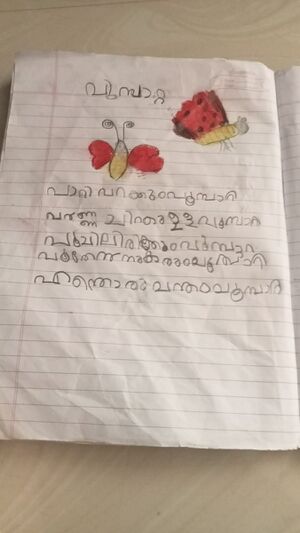 പൂമ്പാറ്റ
പാറി പറക്കും പൂമ്പാറ്റ
വർണ്ണ ചിറകുള്ള പൂമ്പാറ്റ
പൂവിലിരിക്കും പൂമ്പാറ്റ
പൂന്തേൻ നുകരും പൂമ്പാറ്റ
എന്തൊരു ചന്തം പൂമ്പാറ്റ